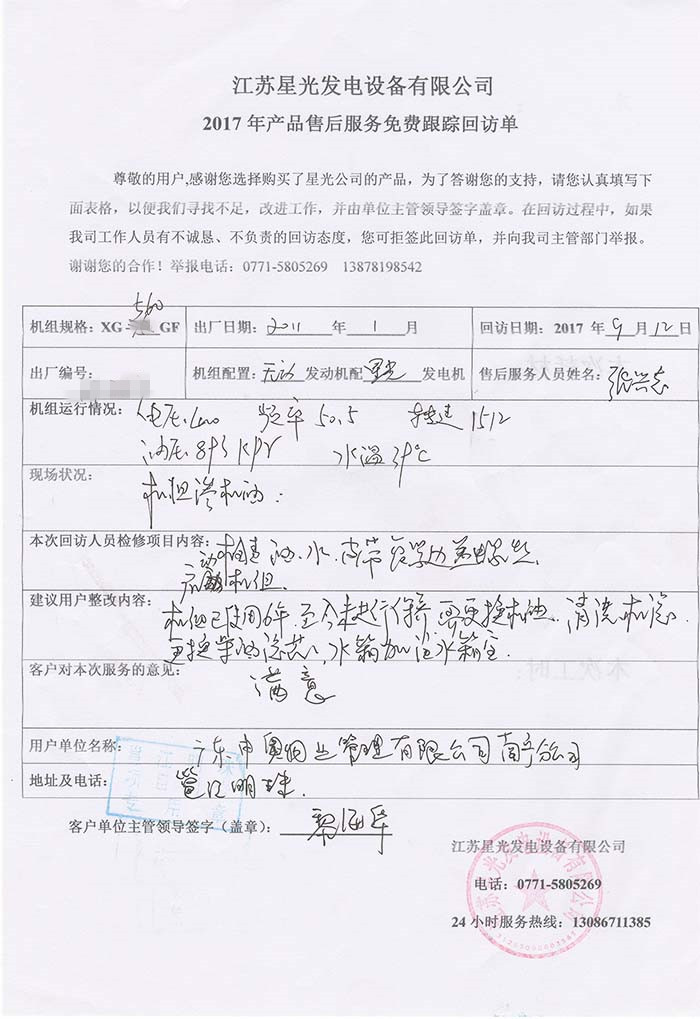 江苏星光发电设备有限公司
2017 年产品售后服务免费跟踪回访单
尊敬的用户,感谢您选择购买了星光公司的产品，为了答谢您的支持，请您认真填写下
面表格，以便我们寻找不足，改进工作，并由单位主管领导签字盖章。在回访过程中，如果
我司工作人员有不诚恳、不负责的回访态度，您可拒签此回访单，并向我司主管部门举报。
谢谢您的合作！举报电话：0771-5805269 13878198542
560
机组规格：XG- GF 出厂日期：2011 年 1 月 回访日期：2017 年 9 月 12 日
出厂编号： 机组配置：无动 发动机配 星光 发电机 售后服务人员姓名：张兴志
机组运行情况：电压 400 频率 50.5 转速 1512
油压 KPa 水温 ℃
现场状况：
机组渗机油.
本次回访人员检修项目内容：检查油.水.皮带
启动机组.
建议用户整改内容：机组已使用6年.至今未进行保养 需更换机油.清洗机滤.
更换柴油滤芯,水箱加注水箱宝
客户对本次服务的意见：
满意
用户单位名称： 广东中奥物业管理有限公司南宁分公司
地址及电话： 邕江明珠.
客户单位主管领导签字（盖章）：黎海军
江苏星光发电设备有限公司
电话：0771-5805269
24 小时服务热线：13086711385